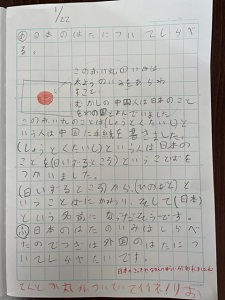 1/22
め日本のはたについてしらべ
る。
この赤い丸のいみは
太ようのいみをあらわ
すさし
むかしの中国人は日本のこと
をわの国とよんでいました
この赤い丸のことは(しょうとくたいし)と
いう人は中国に手紙を書きました。
(しょうとくたいし)という人は日本の
ことを(日いずるところ)ということばを
つかいました。
(日いずるところ)から(ひのもと)と
いうことばにかわり、そして(日本)
という名前になったそうです。
ふ日本のはたのいみはしらべ
たのでつぎは外国のはたについ
てしらべたいです。
日本の